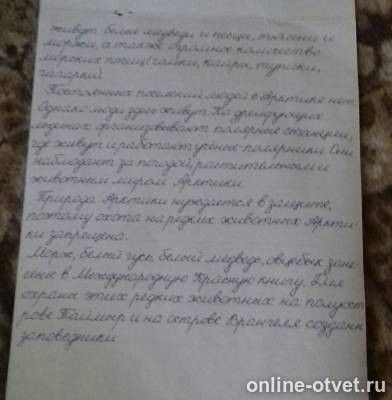 живут белые медведи и песцы, тюлени и
моржи, а также огромное количество
морских птиц (чайки, кайры, тупики,
гагарки).
Постоянных поселений людей в Арктике нет.
Однако люди здесь живут. На дрейфующих
льдинах организовывают полярные станции,
где живут и работают учёные-полярники. Они
наблюдают за погодой, растительным и
животным миром Арктики.
Природа Арктики нуждается в защите,
поэтому охота на редких животных Аркти-
ки запрещена.
Морж, белый гусь, белый медведь, овцебык зане-
сены в Международную Красную книгу. Для
охраны этих редких животных на полуост
рове Таймыр и на острове Врангеля созданы
заповедники
online-otvet.ru